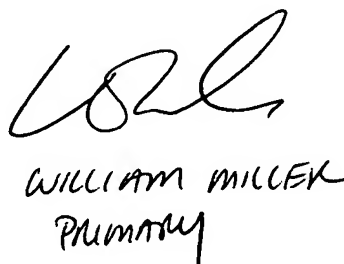 WILLIAM MILLER
PRIMARY